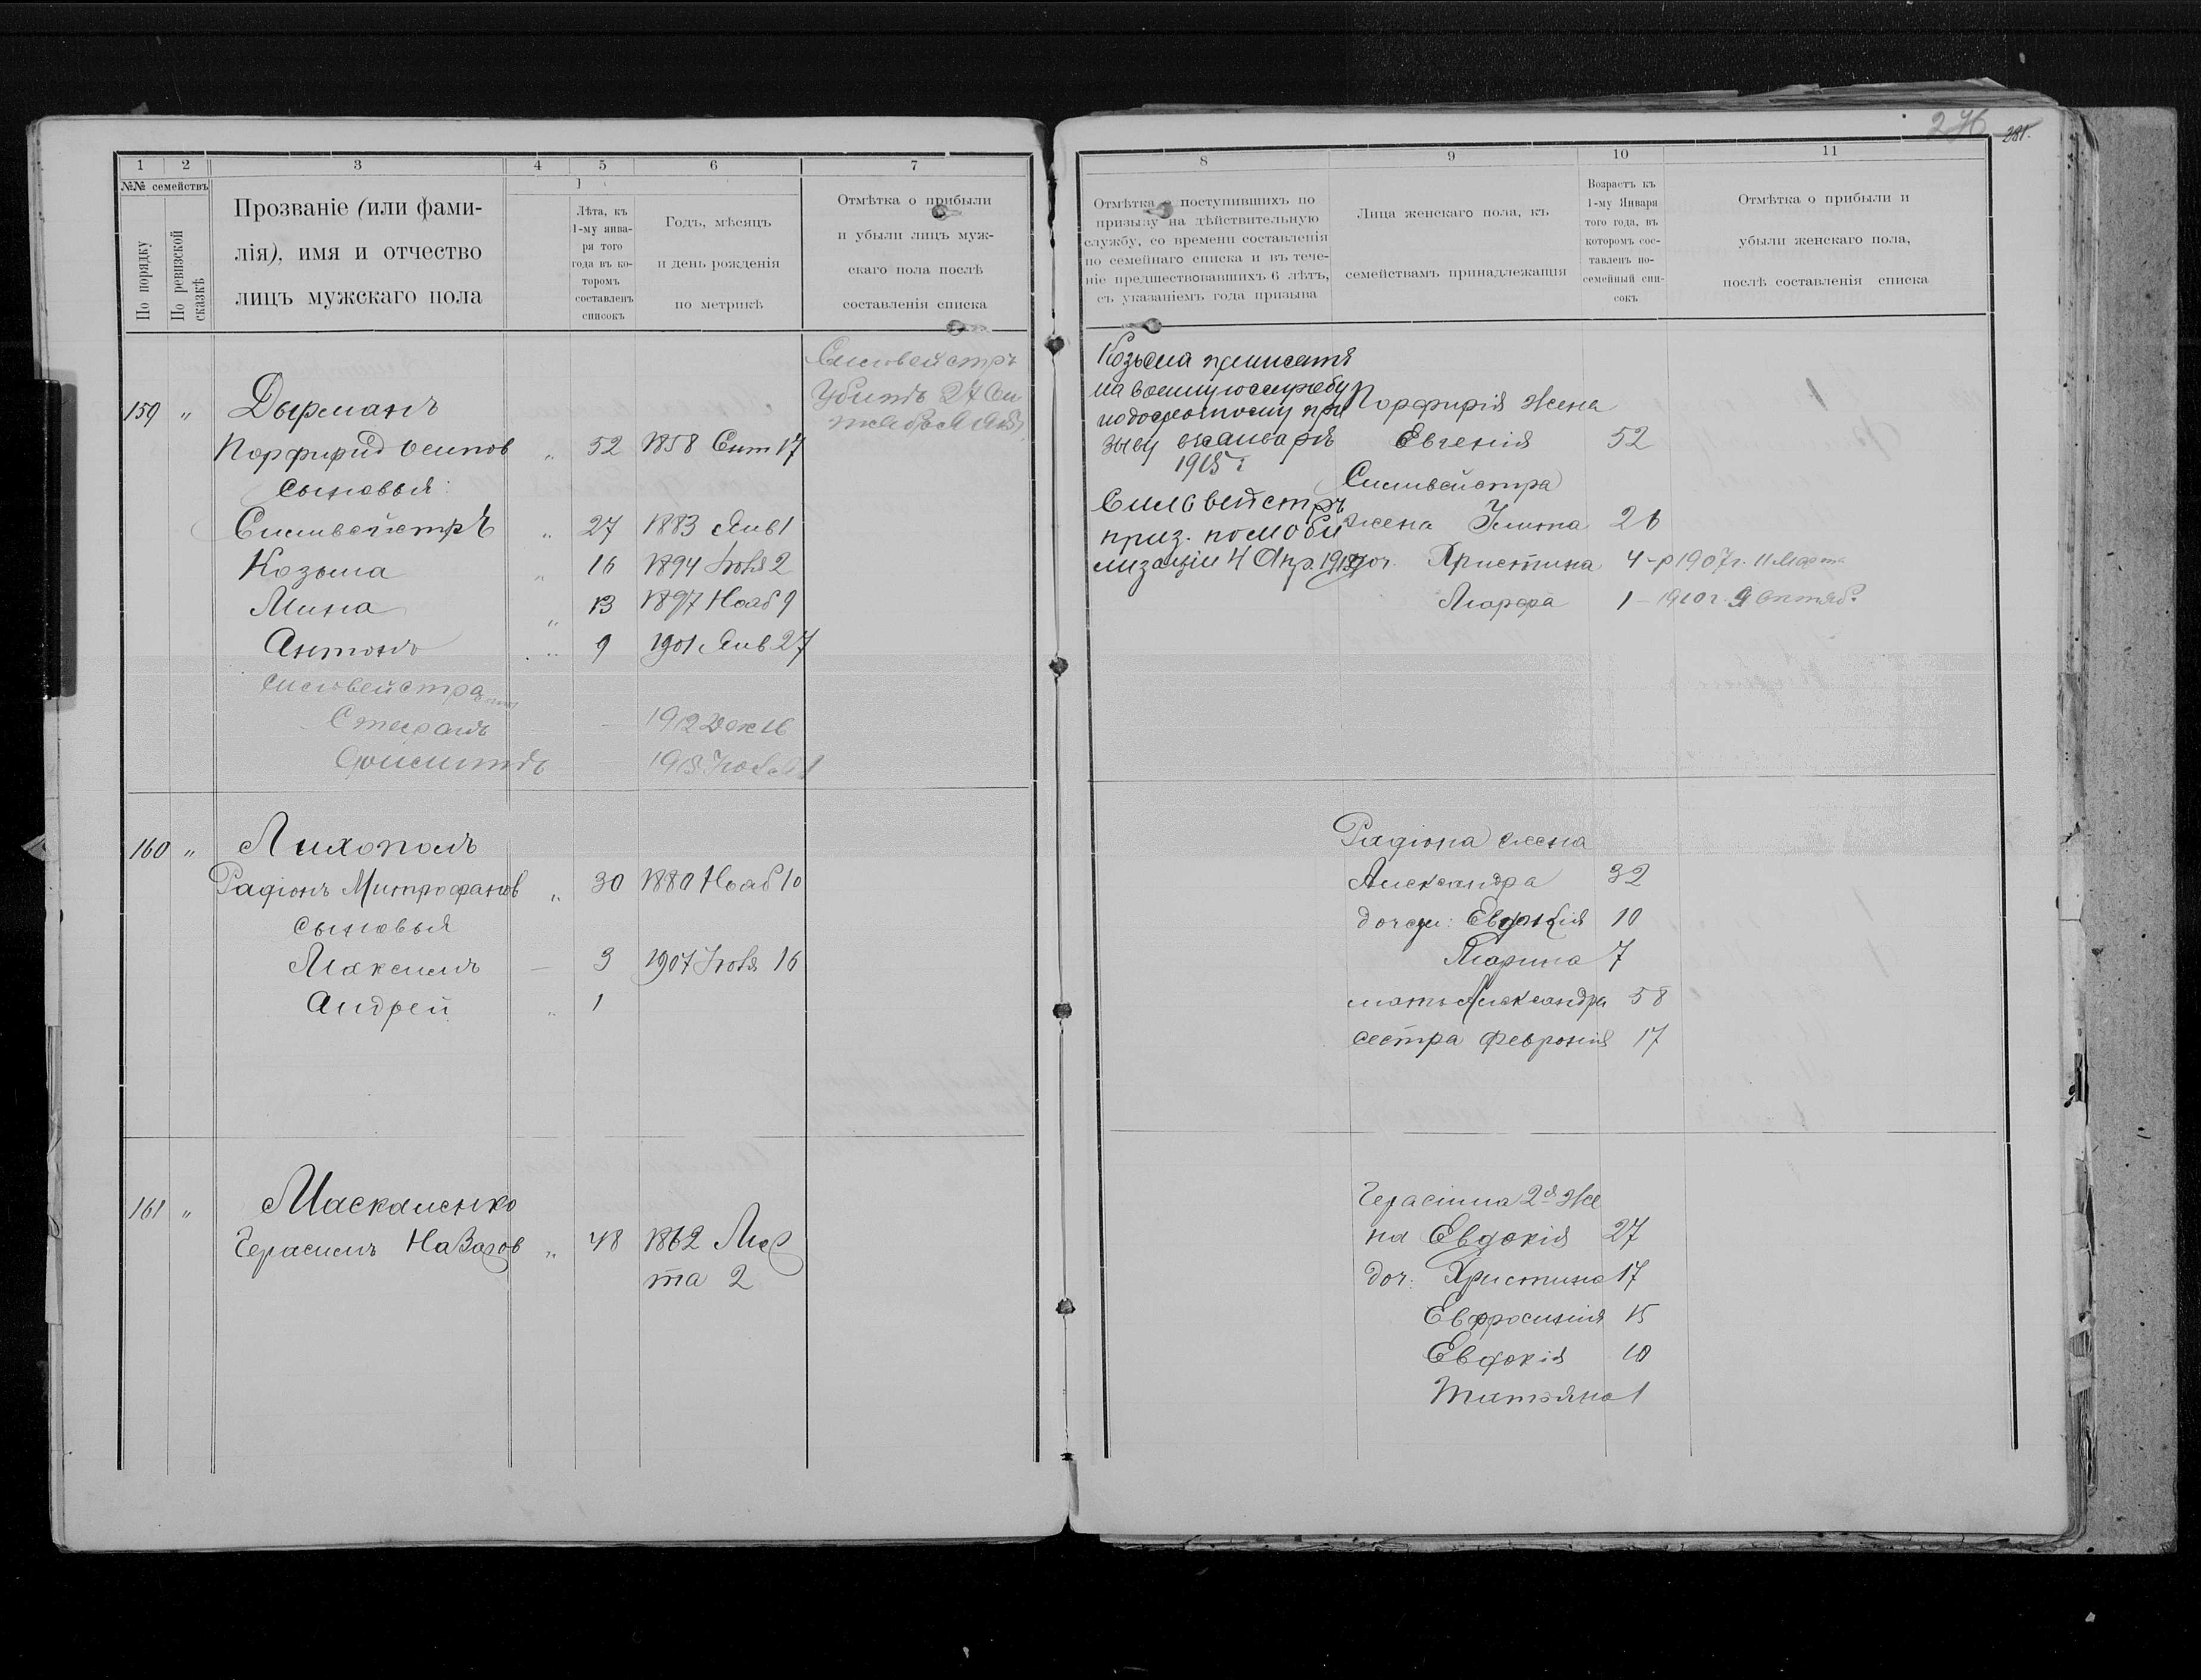 276 281.
1 2 3 4 5 6 7
№№ семействъ
По порядку
По ревизской сказкѣ
Прозваніе (или фами-
лія), имя и отчество
лицъ мужскаго пола
1
Лѣта, къ
1-му янва-
ря того
года въ ко-
торомъ
составленъ
списокъ
Годъ, мѣсяцъ
и день рожденія
по метрикѣ
Отмѣтка о прибыли
и убыли лицъ муж-
скаго пола послѣ
составленія списка
Сильвейстръ
Убитъ 24 Сен
159 " Дырманъ
Порфирій Осипов " 52 1858 Сент 17
сыновья:
Сильвейстръ " 27 1883 Янв 1
Козьма " 16 1894 Іюля 2
Мина " 13 1897 Нояб 9
Антонъ " 9 1901 Янв 27
Сильвейстра
Стефанъ - 1912 Дек 16
1915
160 " Лихополъ
Радіонъ Митрофанов " 30 1880 Нояб 10
сыновья
Максимъ — 3 1907 Іюля 16
Андрей " 1
161 " Маскаленко
Герасимъ Назаров " 48 1862 Мар
та 2
8 9 10 11
Отмѣтка о поступившихъ по
призыву на дѣйствительную
службу, со времени составленія
по семейнаго списка и въ тече-
ніе предшествовавшихъ 6 лѣтъ,
съ указаніемъ года призыва
Лица женскаго пола, къ
семействамъ принадлежащія
Возрастъ къ
1-му Января
того года, въ
которомъ сос-
тавленъ по-
семейный спи-
сокъ
Отмѣтка о прибыли и
убыли женскаго пола,
послѣ составленія списка
Козьма принятъ
на военную службу
по досрочному при
зыву января
1915 г
Сильвейстръ
приз. по моби
лизаціи 4 Апр. 1915
Порфирія жена
Евгенія 52
Сильвейстра
жена 26
доч. Христина 4 - р 1907 г. 11 Марта
Марфа 1 - 1910 г. 9 Октяб.
Радіона жена
Александра 32
дочери: Евдокія 10
Марина 7
мать Александра 58
сестра Февронія 17
Герасима 2я Же
на Евдокія 27
доч. Христина 17
Евфросинія 15
Евдокія 10
Татьяна 1